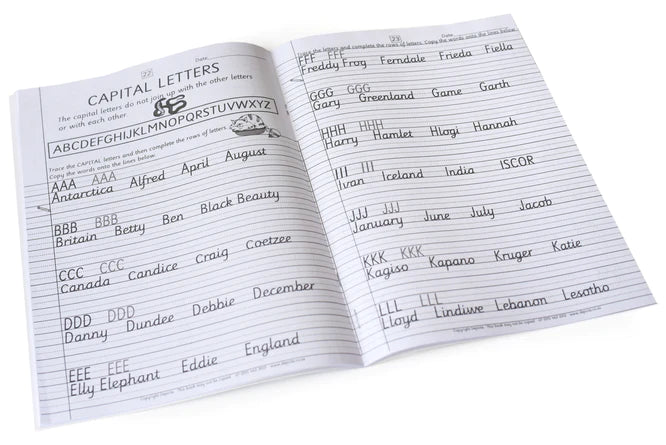 22
Date
CAPITAL LETTERS
The capital letters do not join up with the other letters
or with each other
ABCDEFGHIJKLMNOPQRSTUVWXYZ
Trace the CAPITAL letters and then complete the rows of letters
Copy the words onto the lines below.
AAA AAA
Antarctica Alfred April August
BBB BBB
Britain Betty Ben Black Beauty
CCC CCC
Canada Candice Craig Coetzee
DDD DDD
Danny Dundee Debbie December
EEE EEE
Elly Elephant Eddie England
23
Date
Trace the letters and complete the rows of letters. Copy the words onto the lines below.
FFF FFF
Freddy Frog Ferndale Frieda Fiella
GGG GGG
Gary Greenland Game Garth
HHH HHH
Harry Hamlet Hlogi Hannah
III III
Ivan Iceland India ISCOR
JJJ JJJ
January June July Jacob
KKK KKK
Kagiso Kapano Kruger Katie
LLL LLL
Lloyd Lindiwe Lebanon Lesotho